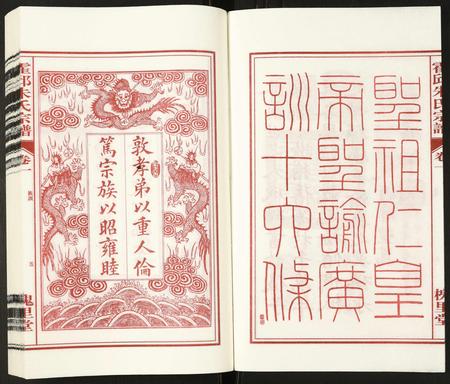 霍邱朱氏宗譜
卷
槐里堂
聖祖仁皇
帝聖諭廣
訓十六條
敦孝弟以重人倫
篤宗族以昭雍睦
霍邱朱氏宗譜
卷
槐里堂